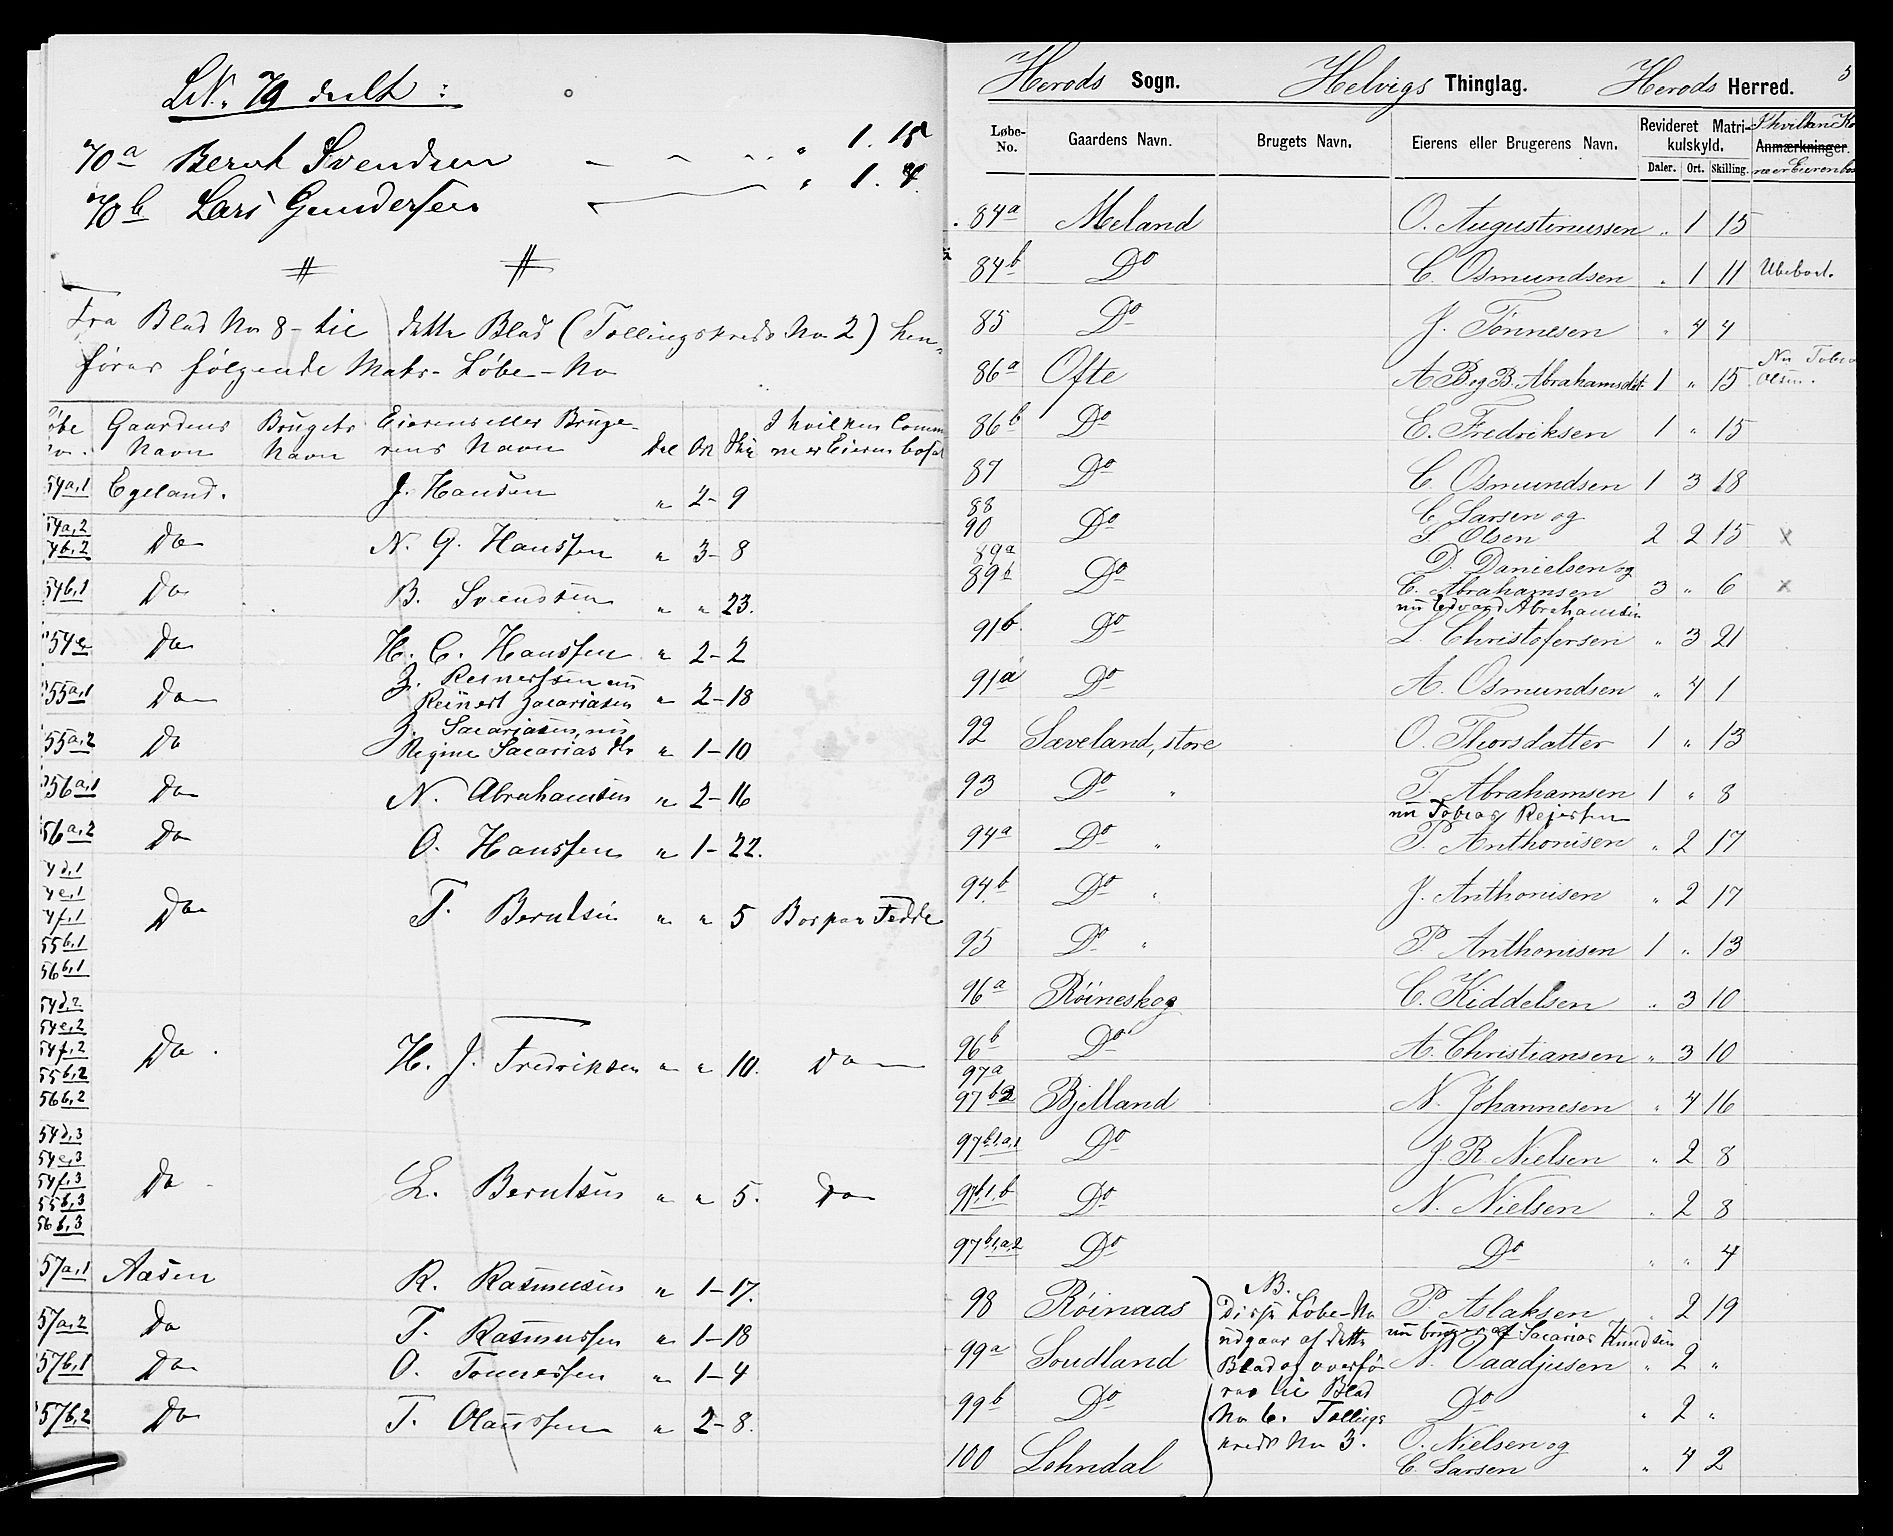 LN. 70 deelt:
70a Bernt Svendsen — „ 1. 15
70b Lars Gundersen — „ 1. 4.
Fra Blad No 8 - til dette Blad (Tællingskreds No 2) hen-
føres følgende Matr- Løbe-No
Løbe No. Gaardens Navn Brugets Navn Eierens eller Bruge-rens Navn Dal Ort Skil I hvilken Comm
54a,1 Egeland. J. Hansen „ 2- 9
54a,2 54b,2 Do N. G. Hanssen „ 3- 8
54b,1 Do B. Svendsen „ „ 23.
54c Do H. C. Hanssen „ 2- 2
55a,1 Do Z. Reinertsen nu
Reinert Zacariasen „ 2- 18
55a,2 Do Z. Sacariasen, nu
Regine Sacarias dtr „ 1- 10
56a,1 Do N. Abrahamsen „ 2- 16
56a,2 Do O. Hanssen „ 1- 22.
54d,1
54e,1
54f,1 Do T. Berntsen „ „ 5 Bor paa Fedde
55b,1
56b,1
54d,2
54e,2
54f,2 Do. H. J. Fredriksen „ „ 10. Do
55b,2
56b,2
54d,3
54e,3
54f,3 Do L. Berntsen „ „ 5. Do
55b,3
56b,3
57a,1 Aasen R. Rasmussen „ 1- 17.
57a,2 Do T. Rasmussen „ 1- 18
57b,1 Do O. Tonnessen „ 1- 4
57b,2 Do T. Olaussen „ 2- 8.
Herods Sogn. Helvigs Thinglag. Herods Herred. 5
Løbe-No. Gaardens Navn. Brugets Navn. Eierens eller Brugerens Navn. Revideret Matri-kulskyld. I hvilken Ko
Daler. Ort. Skilling. Anmærkninger.
84a Meland O. Augustinussen „ 1 15
84b Do C. Osmundsen „ 1 11 Ubeboet.
85 Do J. Tønnesen „ 4 4
86a Ofte A B og B. Abrahamsdtr 1 „ 15 Nu Tobia
Olsen.
86b Do E. Fredriksen 1 „ 15
87 Do C. Osmundsen 1 3 18
88 90 Do C. Larsen og
T. Olsen 2 2 15 x
89a 89b Do D. Danielsen og
C. Abrahamsen 3 „ 6 x
nu Edvard Abrahamsen
91b Do L. Christofersen „ 3 21
91a Do A. Osmundsen „ 4 1
92 Sæveland, store O. Thorsdatter 1 „ 13
93 Do „ T. Abrahamsen 1 „ 8
nu Tobias Rejersen
94a Do „ P. Anthonisen „ 2 17
94b Do „ J. Anthonisen „ 2 17
95 Do „ P. Anthonisen 1 „ 13
96a Røineskog C. Kiddelsen „ 3 10
96b Do A. Christiansen „ 3 10
97a 97b2 Bjelland N. Johannesen „ 4 16
97b1,a,1 Do J. R. Nielsen „ 2 8
97b,1,b Do N. Nielsen „ 2 8
97b1,a,2 Do Do „ „ 4
98 Røinaas P. Aslaksen „ 2 19
nu bruges af Sacarias Knudsen
99a Soudland N. Vaadjusen „ 2 „
99b Do Do „ 2 „
100 Lohndal O. Nielsen og
C. Larsen „ 4 2
NB.
Disse Løbe-No
udgaar af dette
Blad og overfø-
res til Blad
No 6. Tællings
kreds No 3.